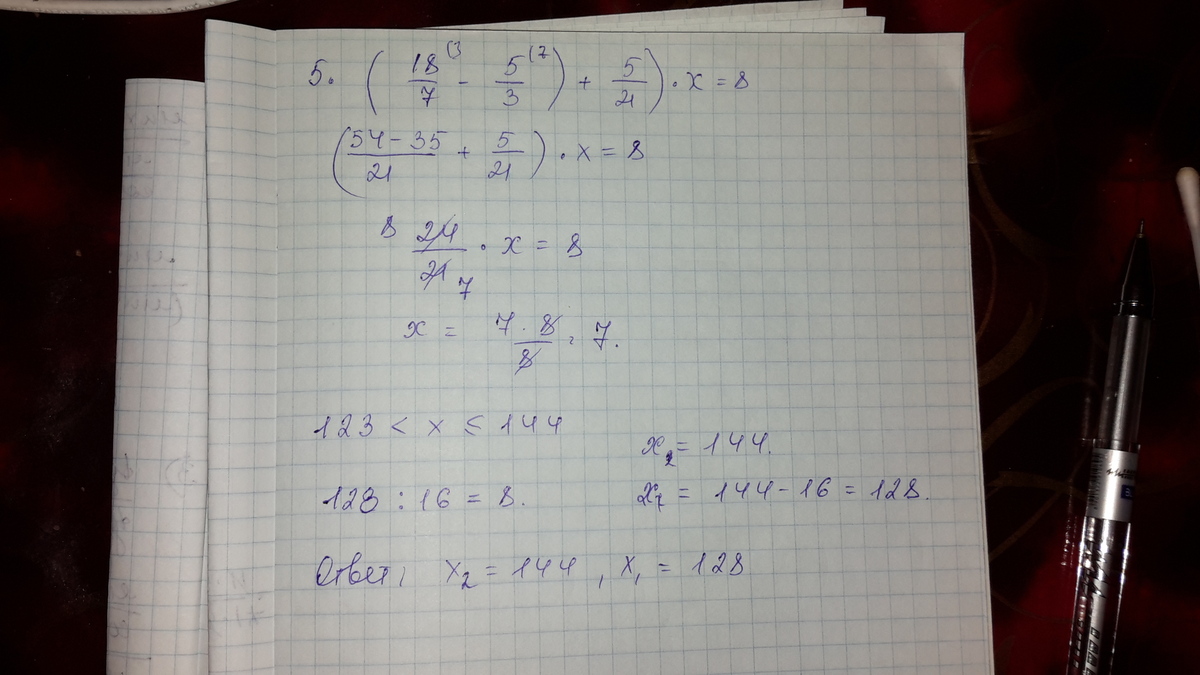 5. ( 18/7 (3 - 5/3 (7 ) + 5/21 ) · x = 8
( (54 - 35)/21 + 5/21 ) · x = 8
8 24/21 7 · x = 8
x = 7 · 8/8 = 7.
123 < x ≤ 144
x₂ = 144.
128 : 16 = 8.
x₁ = 144 - 16 = 128.
Ответ: x₂ = 144, x₁ = 128